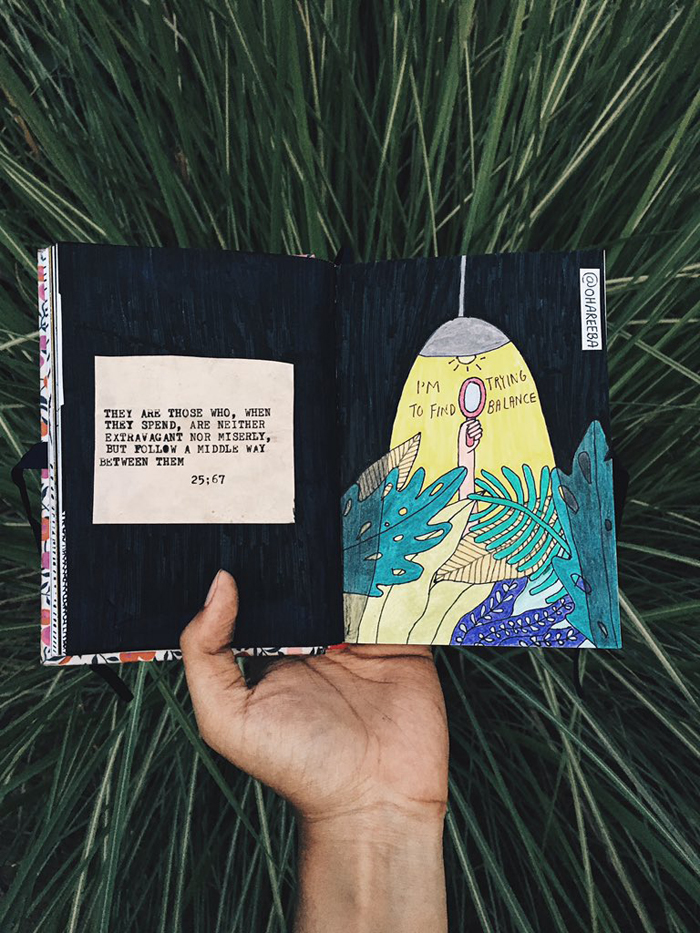 THEY ARE THOSE WHO, WHEN
THEY SPEND, ARE NEITHER
EXTRAVAGANT NOR MISERLY,
BUT FOLLOW A MIDDLE WAY
BETWEEN THEM
25;67
I'M TRYING
TO FIND BALANCE
@OHAREEBA